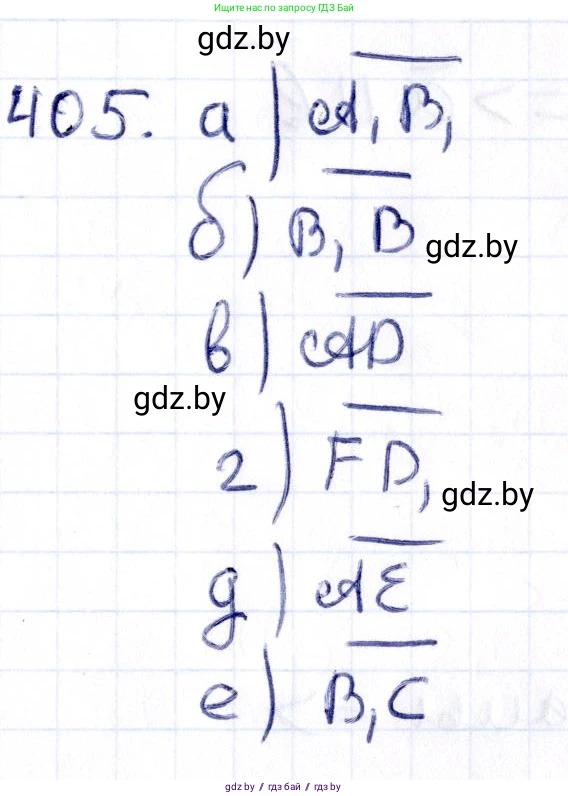 Ищите нас по запросу ГДЗ Бай
gdz.by
405. а) A₁B₁
б) B₁B
gdz.by
в) AD
gdz.by
г) FD₁
gdz.by
д) AE
е) B₁C
gdz.by / гдз бай / gdz.by